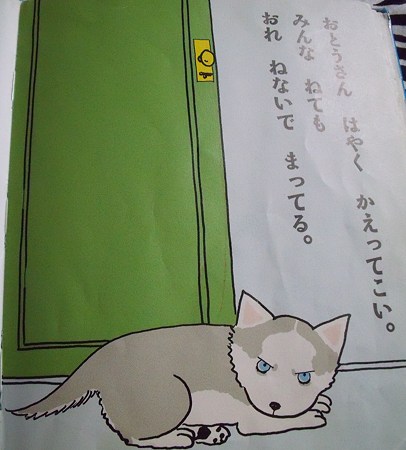 おとうさん　はやく　かえってこい。
みんな　ねても
おれ　ねないで　まってる。